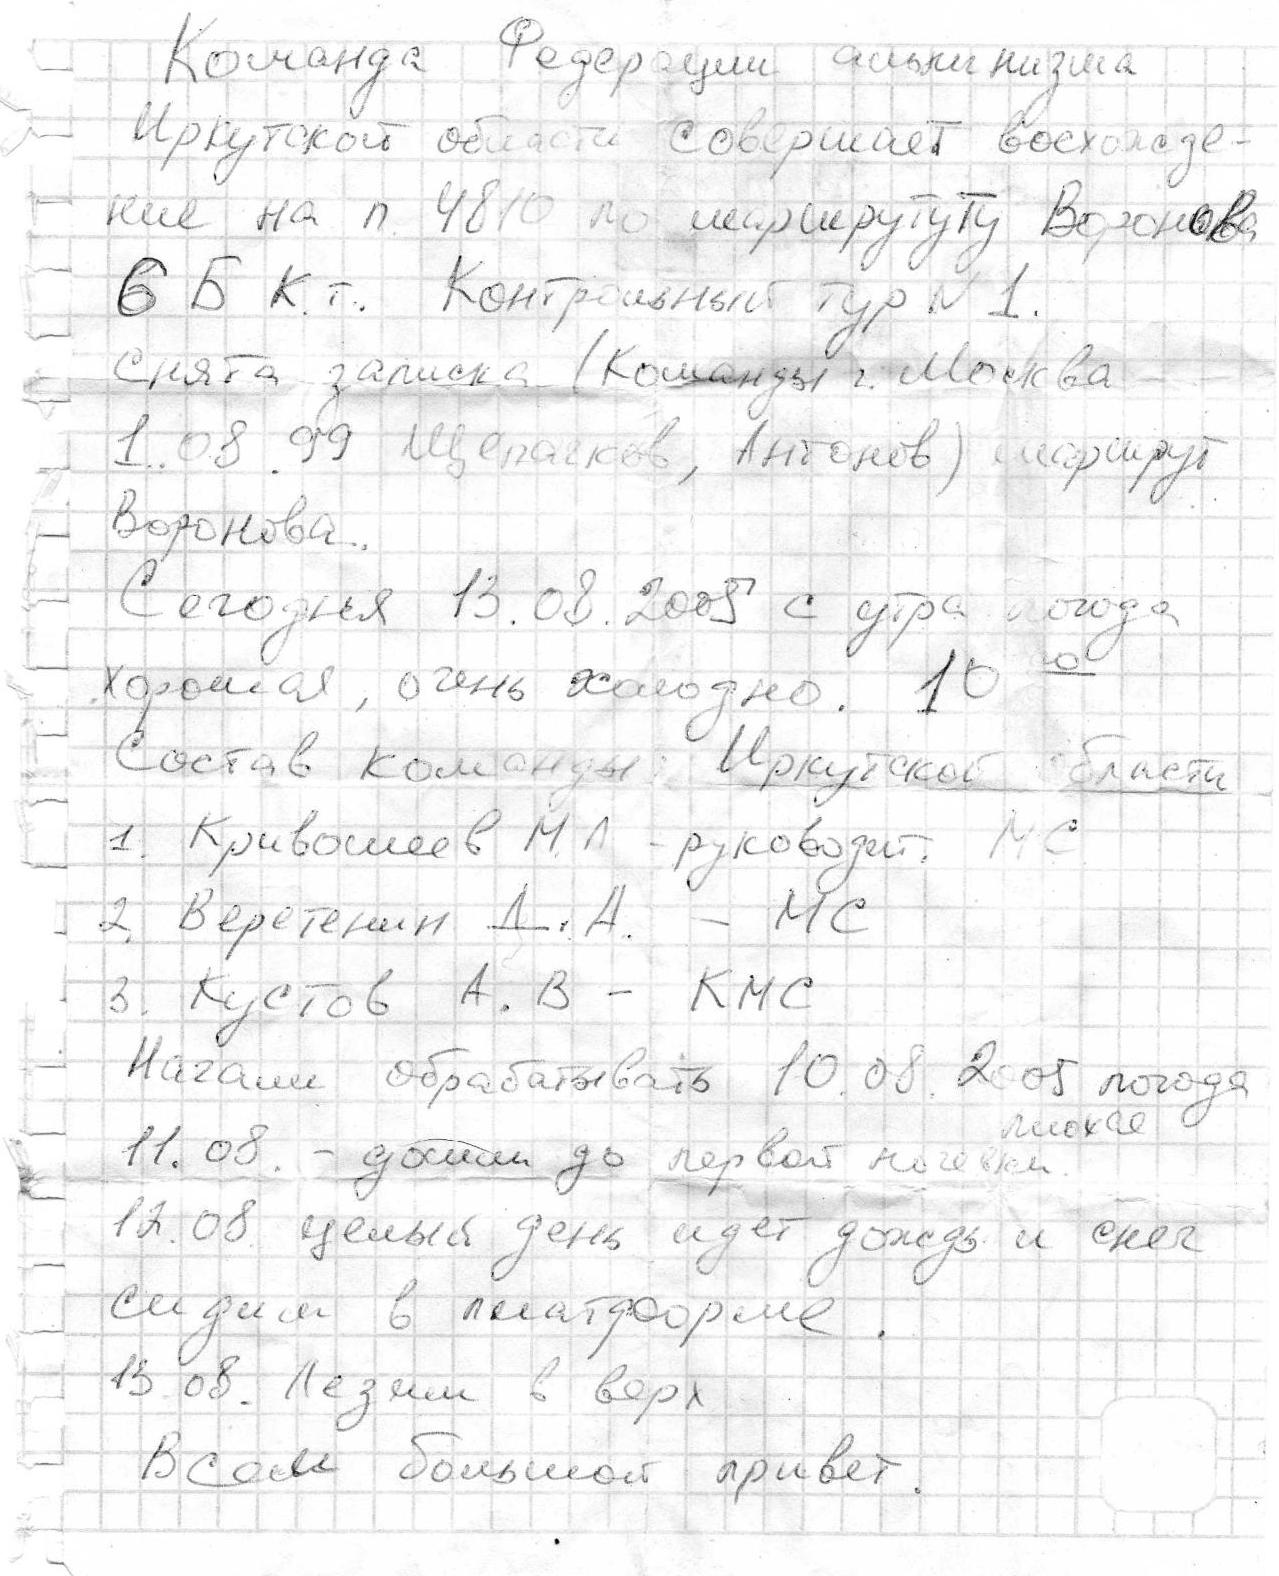 Команда Федерации альпинизма
Иркутской области совершает восхожде-
ние на п. 4810 по маршрутуту Воронова
6 Б к.т. Контрольный тур N 1.
Снята записка (Команды г. Москва
1.08.99 Щепачков, Антонов) маршрут
Воронова.
Сегодня 13.08.2005 с утра погода
хорошая, очень холодно. 10 00
Состав команды: Иркутской области
1. Кривошеев М.П - руководит. МС
2. Веретенин Д.А. - МС
3. Кустов А.В - КМС
Начали обрабатывать 10.08.2005 погода
плохае
11.08. - дошли до первой ночевки.
12.08. целый день идет дождь и снег
сидим в платформе.
13.08. Лезим в верх
Всем большой привет.